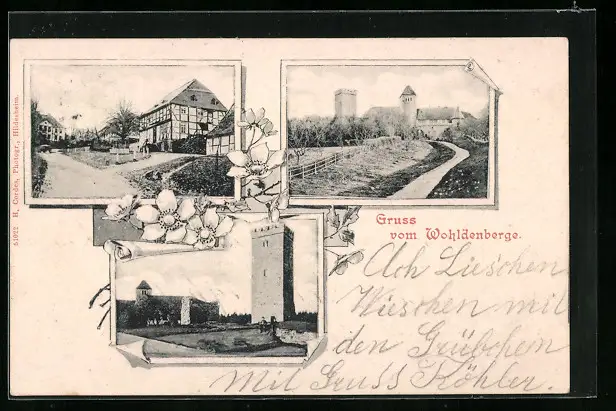 51922 H. Cordes, Photogr., Hildesheim.
Gruss
vom Wohldenberge.
Ach Lieschen
Wieschen mit
den Grübchen
Mit Gruss Köhler.